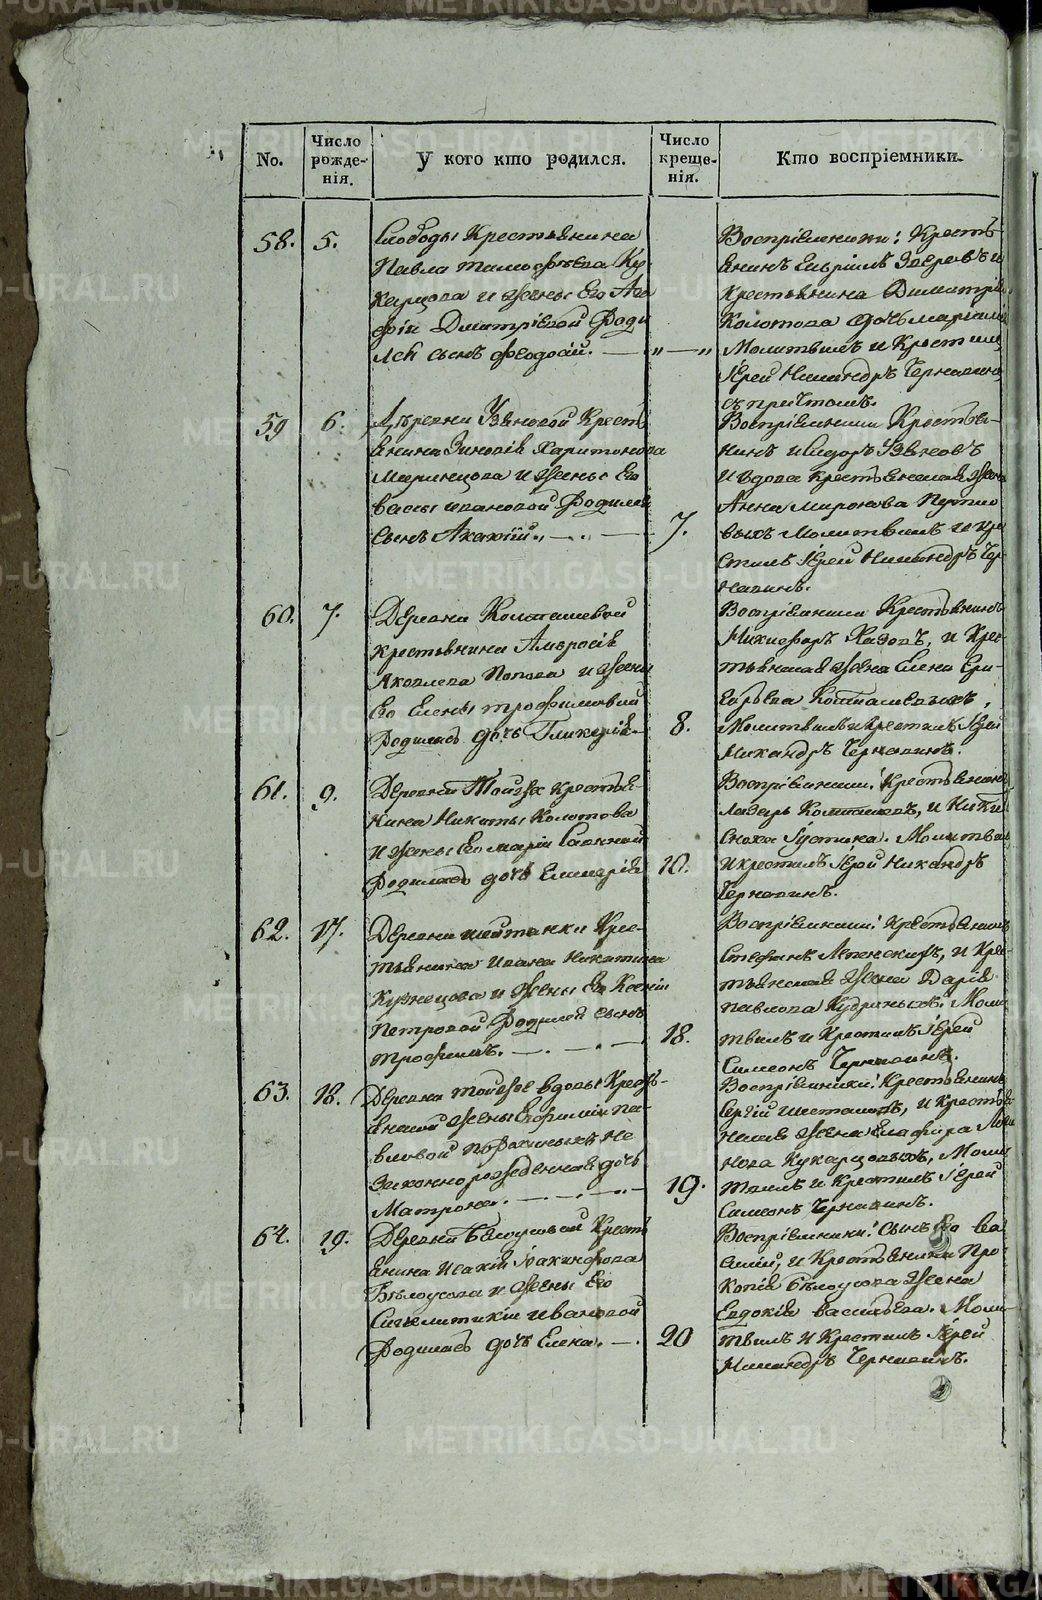 No.
Число рожде-нія.
У кого кто родился.
Число креще-нія.
Кто воспріемники.
58. 5.
Слободы Крестьянина
Павла Тимофѣева Ку
харцова и жены Его Ага
фіи Дмитріевой Роди
лся сынъ Феодосій. — „ — „
Воспріемники: Кресть-
янинъ Гавріилъ Звѣревъ и
Крестьянина Димитрія
Колотова дочь Марія
Молитвилъ и Крестилъ
Іерей Никандръ Чернавинъ
съ причтомъ.
59 6.
Деревни Узяновой Кресть
янина Зиновія Харитонова
и жены Его
Вассы Ивановой Родился
Сынъ Акакій. 7.
Воспріемники Крестья-
нинъ Исидоръ
и вдова крестьянская жена
Анна Миронова
выхъ Молитвилъ и кре
стилъ Іерей Никандръ Чер-
навинъ.
60. 7.
Деревни Колташевой
крестьянина Амвросія
Яковлева Попова и жены
Его Елены Трофимовой
Родилась дочь Гликерія. 8.
Воспріемники Крестьянинъ
Никифоръ, и Крес-
тьянская жена Елена Гри-
горьева Колташевыхъ,
Молитвилъ и крестилъ Іерей
Никандръ Чернавинъ.
61. 9.
Деревни Тойже Крестья-
нина Никиты Колотова
и жены Его Маріи Саввиной
Родилась дочь Гликерія 10.
Воспріемники: Крестьянинъ
Лазарь Колташевъ, и
Сноха Іустина. Молитвилъ
и крестилъ Іерей Никандръ
Чернавинъ.
62. 17.
Деревни Шайтанки Крес-
тьянина Ивана Никитина
Кузнецова и жены Его Ксеніи
Петровой Родился сынъ
Трофимъ. 18.
Воспріемники: Крестьянинъ
Стефанъ, и Крес-
тьянская жена Дарія
Павлова Кудриныхъ. Моли-
твилъ и Крестилъ Іерей
Симеонъ Чернавинъ.
63. 18.
Деревни Тойже вдовы Кресть-
янской жены Евфиміи Па-
вловой не
законнорожденная дочь
Матрона. 19.
Воспріемники: Крестьянинъ
Сергій Шестаковъ, и Крестья-
нская жена Глафира
Кухарцовыхъ, Моли
твилъ и Крестилъ Іерей
Симеонъ Чернавинъ.
64. 19.
Деревни Белоусовой Кресть
янина Исакія Іоакинфова
Бѣлоусова и жены Его
Сигклитикіи Ивановой
Родилась дочь Елена. — . 20
Воспріемники: Сынъ Его Ва
силій, и Крестьянина Про
копія Бѣлоусова жена
Евдокія Васильева. Моли-
твилъ и Крестилъ Іерей
Никандръ Чернавинъ.
METRIKI.GASO-URAL.RU